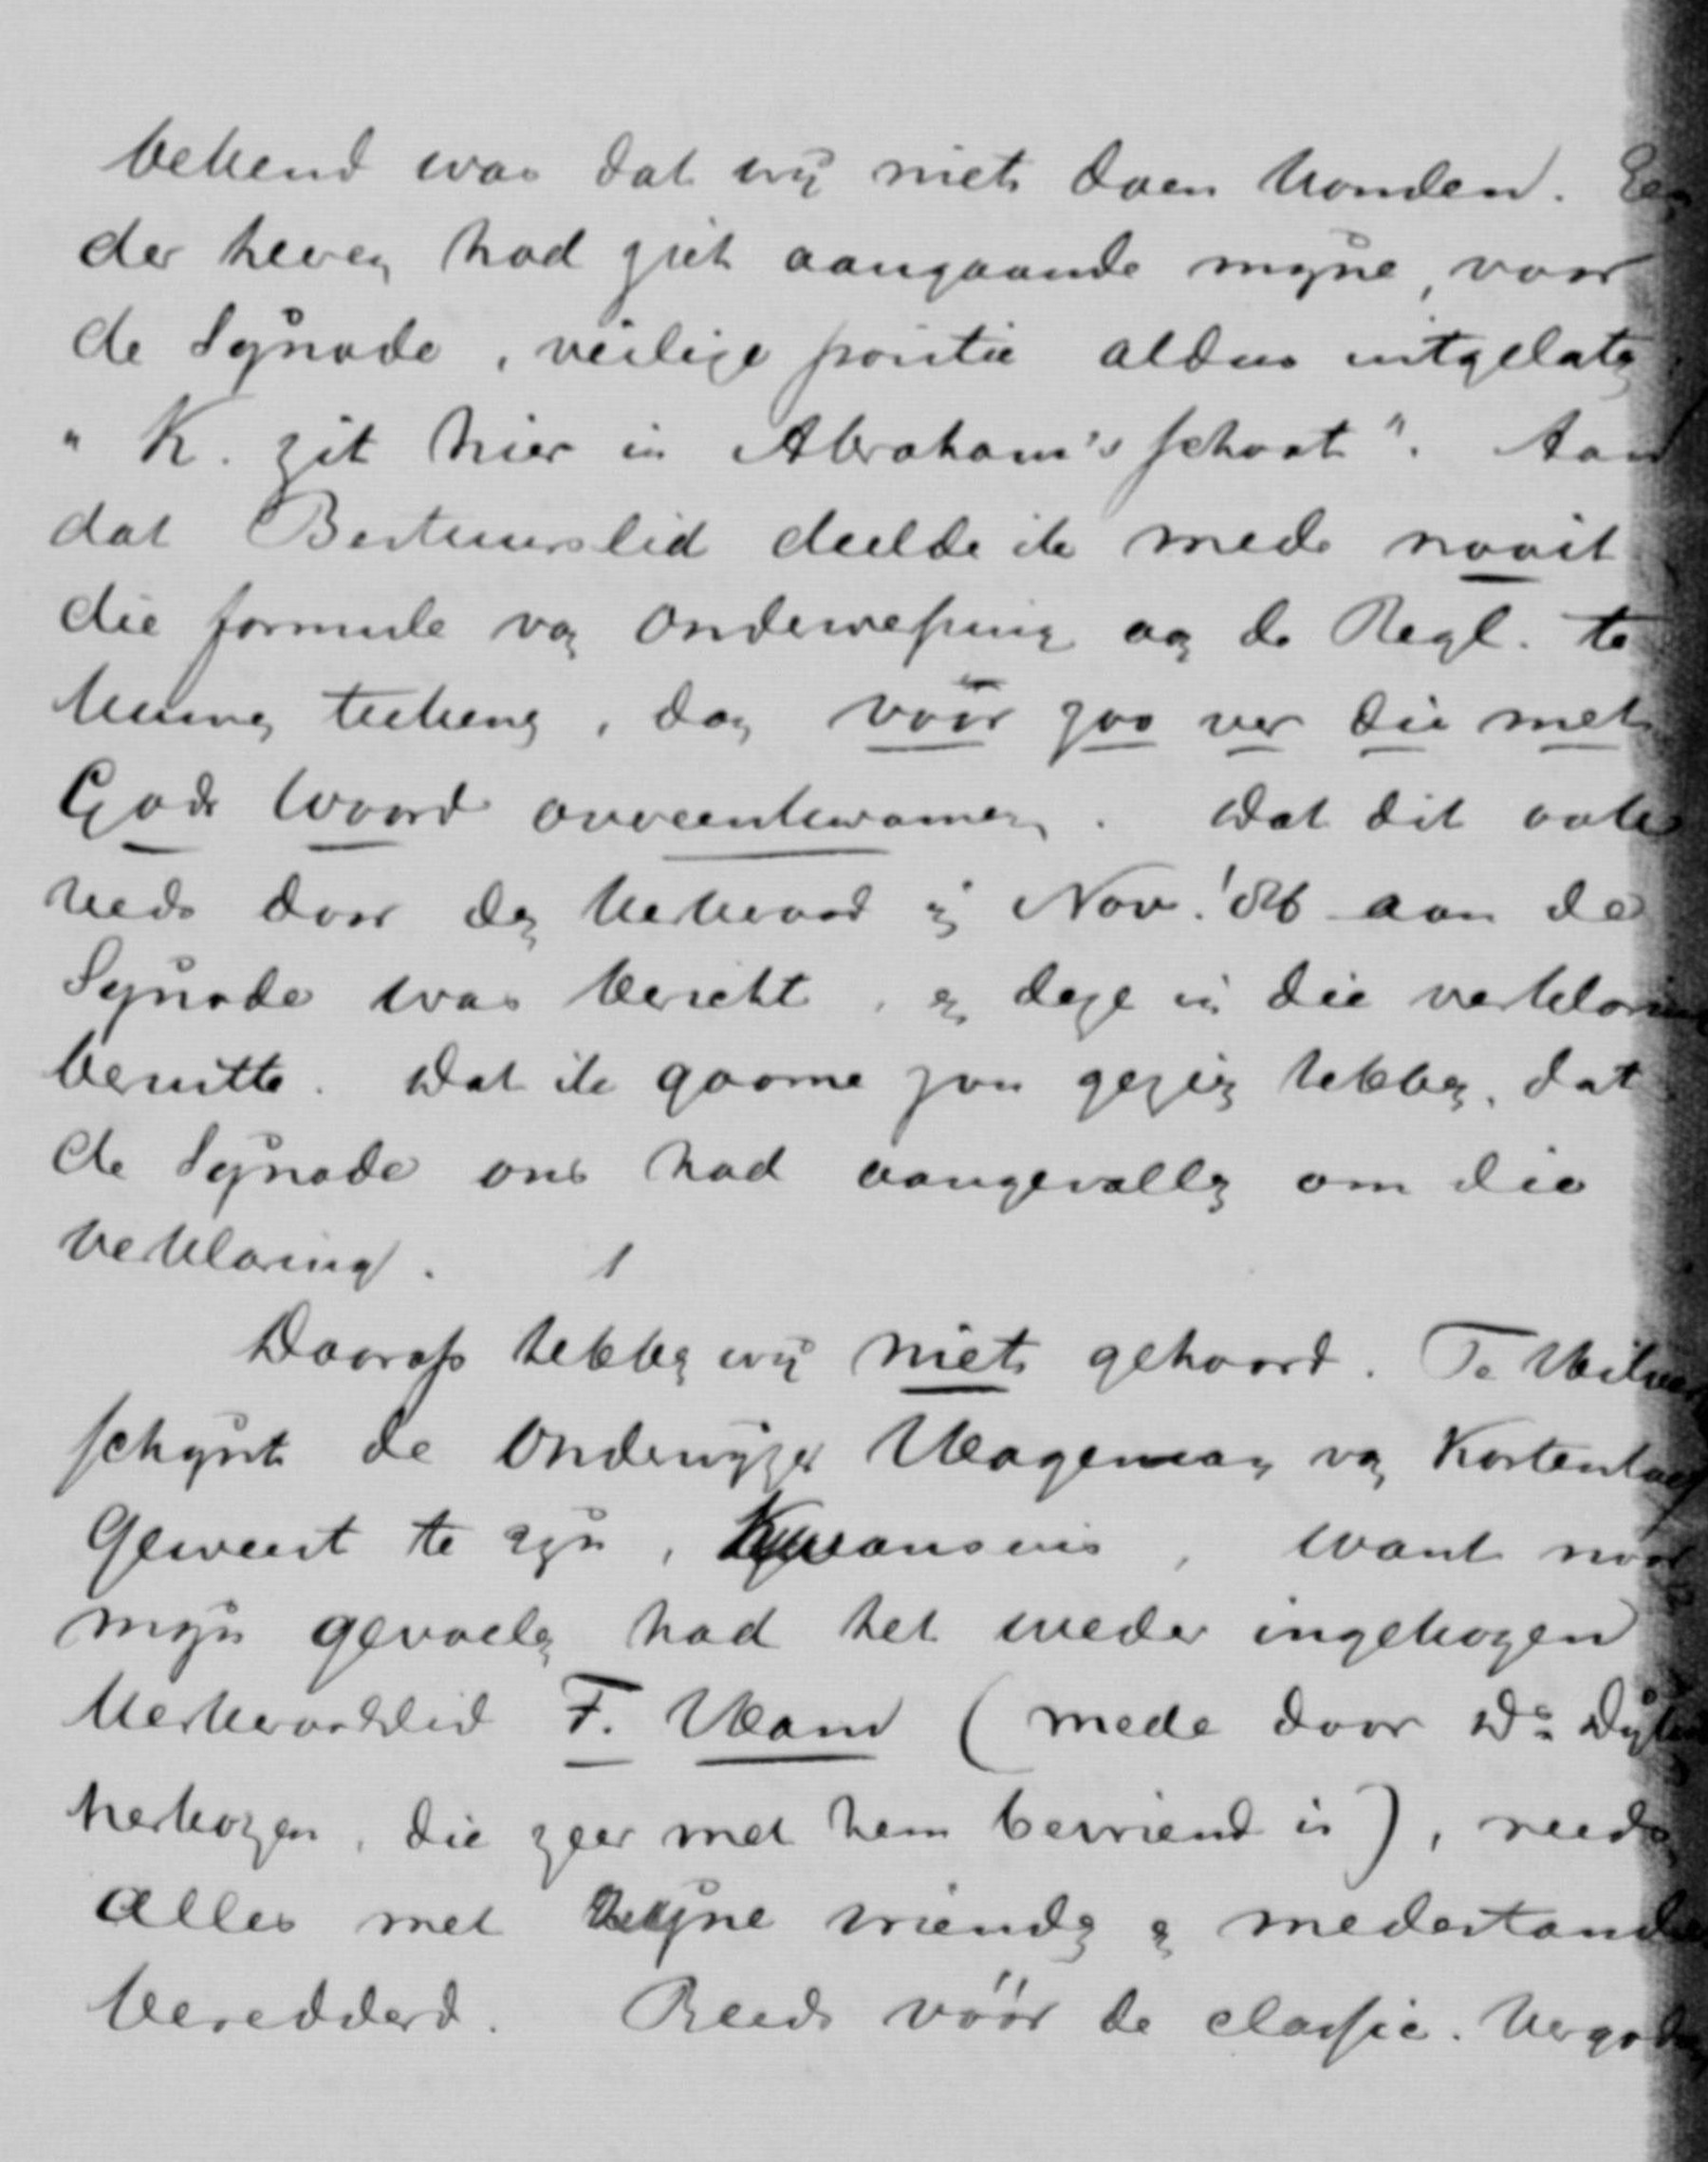 bekend was dat wij niets doen konden. Een
der heeren had zich aangaande mijne, voor
de Synode, veilige positie aldus uitgelaten
"K. zit hier in Abraham's schoot". Aan
dat Bestuurslid deelde ik mede nooit
die formule van onderwerping aan de Regl. te
kunnen teekenen, dan vóór zoo ver die met
Gods Woord overeenkwamen. Dat dit ook
reeds door den kerkeraad in Nov. '86 aan de
Synode was bericht, en deze in die verklaring
berustte. Dat ik gaarne zou gezien hebben, dat
de Synode ons had aangevallen om die
verklaring.
Daarop hebben wij niets gehoord. Te
schijnt de Onderwijzer Wageman van Kortenhoef
geweest te zijn, want naar
mijn gevoelen had het weder ingekozen
kerkeraadslid F. (mede door Ds
herkozen, die zeer met hem bevriend is), reeds
alles met zijne vrienden en medestanders
beredderd. Reeds vóór de classic. Vergad